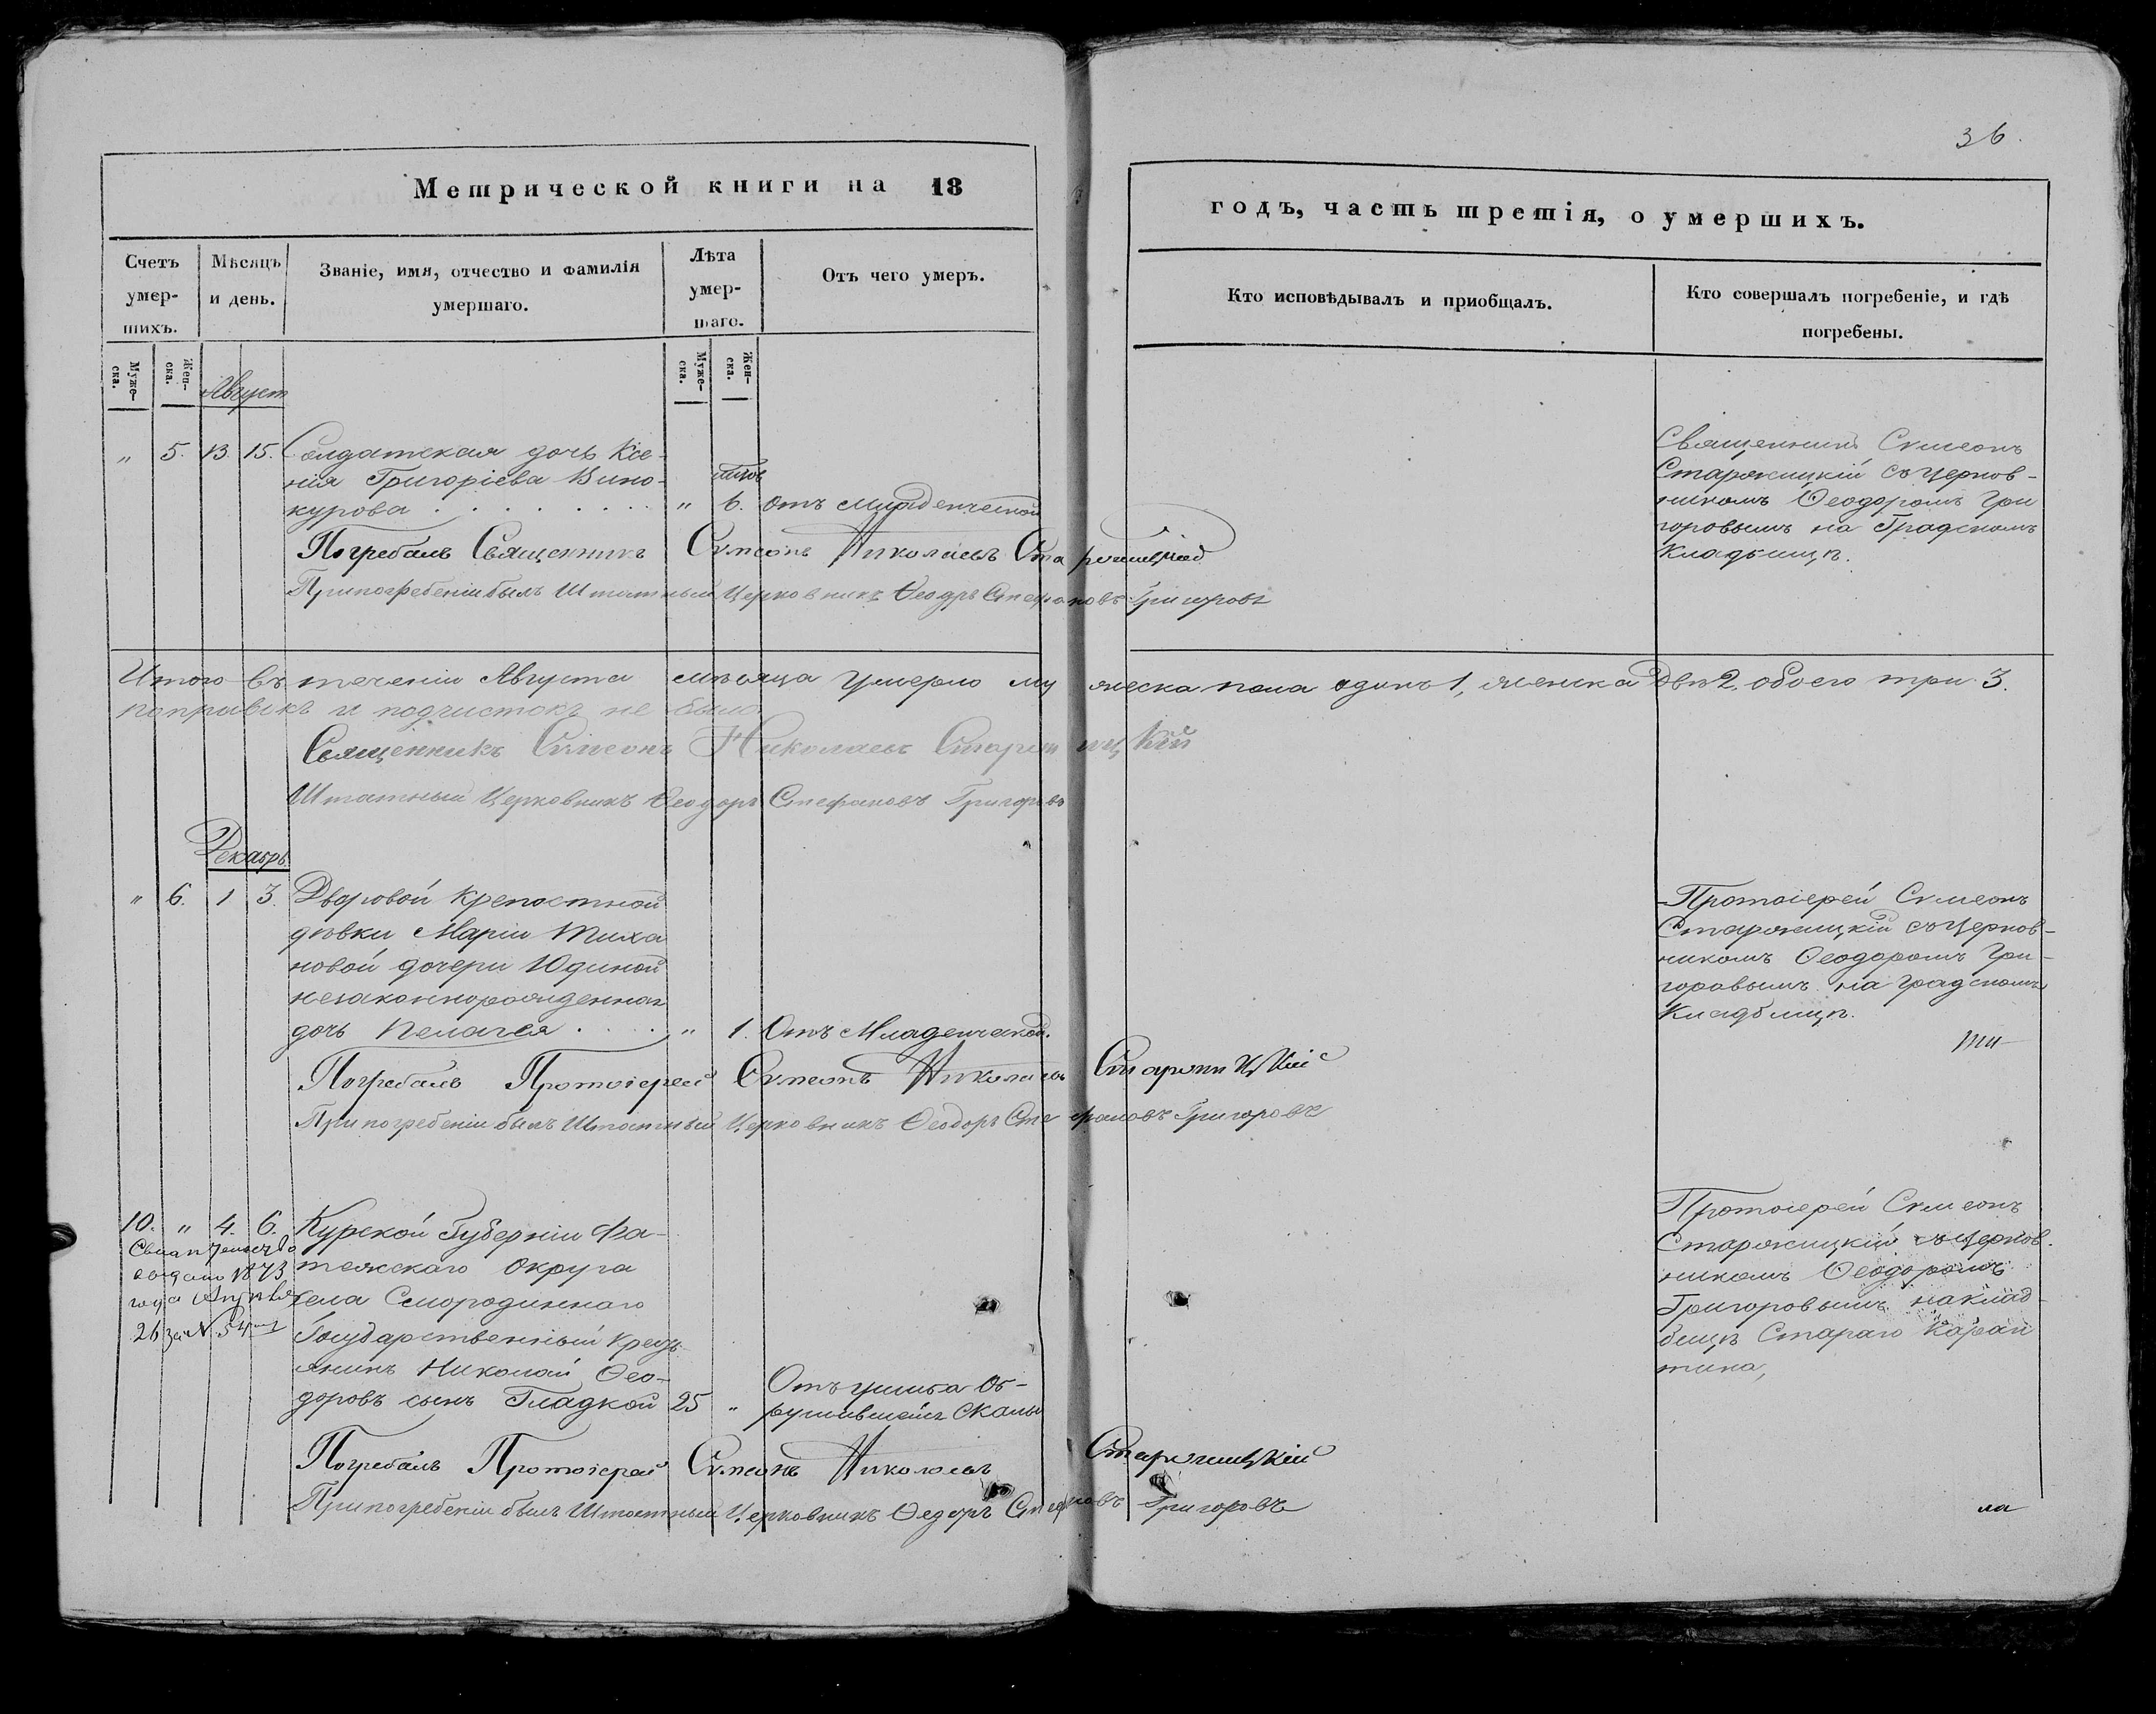 36.
Метрической книги на 18
годъ, часть третія, о умершихъ.
Счетъ умер- шихъ.
Мѣсяцъ и день.
Званіе, имя, отчество и фамилія умершаго.
Лѣта умер- шаго.
Отъ чего умеръ.
Кто исповѣдывалъ и приобщалъ.
Кто совершалъ погребеніе, и гдѣ погребены.
Муже- ска.
Жен- ска.
Муже- ска.
Жен- ска.
Август
" 5. 13. 15. Солдатская дочь Ксе-
нія Григоріева Вино-
курова " 6. отъ младенческой
Священникъ Сѵмеонъ
Старожицкій съ церков-
никомъ Ѳеодоромъ Гри
горовымъ на Градскомъ
Кладбищѣ.
Погребалъ Священникъ Сѵмеонъ Николаевъ Старожицкій
При погребеніи былъ Штатный Церковникъ Ѳеодръ Стефановъ Григоровъ
Итого въ теченіи Августа мѣсяца умерло мужеска пола одинъ 1, женска двѣ 2 обоего три 3.
поправокъ и подчистокъ не было
Священникъ Сѵмеонъ Николаевъ Старожицкій
Штатный Церковникъ Ѳеодоръ Стефановъ Григоровъ
Декабрь
" 6. 1 3. Дворовой крепостной
дѣвки Маріи Тиха
новой дочери Юдиной
незаконнорожденная
дочь Пелагея " 1. Отъ Младенческой.
Протоіерей Сѵмеонъ
Старожицкій съ церков-
никомъ Ѳеодоромъ Гри-
горовымъ на градскомъ
Кладбищѣ.
ти
Погребалъ Протоіерей Сѵмеонъ Николаевъ Старожицкій
При погребеніи былъ Штатный Церковникъ Ѳеодоръ Стефановъ Григоровъ
10. " 4. 6. Курской Губерніи Фа-
тежскаго Округа
села Смородиннаго
Государственный кресть
янинъ Николай Ѳео-
доровъ сынъ Гладкой 25 "
Отъ ушиба об-
рушившейся скалы
выдано 1873
года
26 за № 54
Протоіерей Сѵмеонъ
Старожицкій съ церков-
никомъ Ѳеодоромъ
Григоровымъ на клад-
бищѣ Стараго Каран
тина,
Погребалъ Протоіерей Сѵмеонъ Николаевъ Старожицкій
При погребеніи былъ Штатный Церковникъ Ѳедоръ Стефановъ Григоровъ
ла